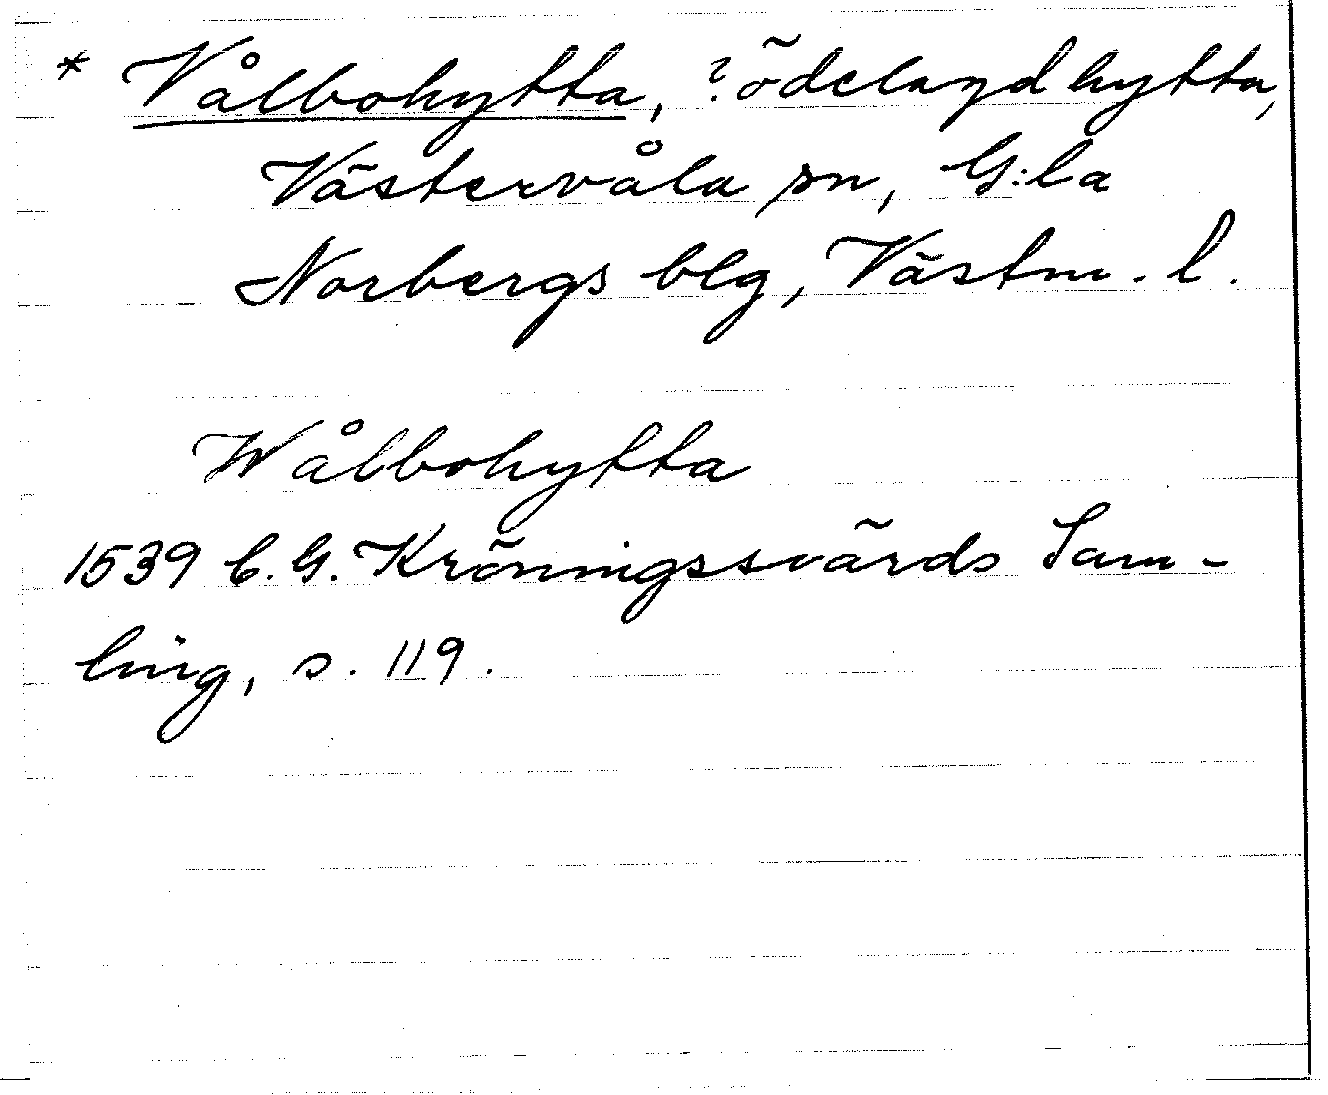 * Vålbohytta, ? ödelagd hytta,
Västervåla sn, G:la
Norbergs blg, Västm. l.
Wålbohytta
1539 C. G. Kröningssvärds Sam-
ling, s. 119.